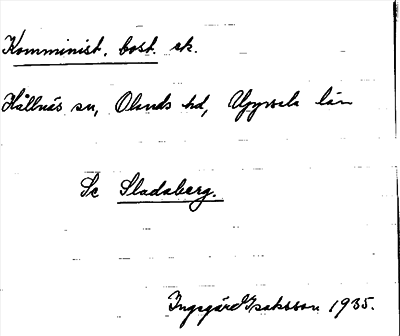 Komminist. bost. sk.
Hållnäs sn, Olands hd, Uppsala län
Se Sladaberg.
Ingegärd Isaksson 1935.